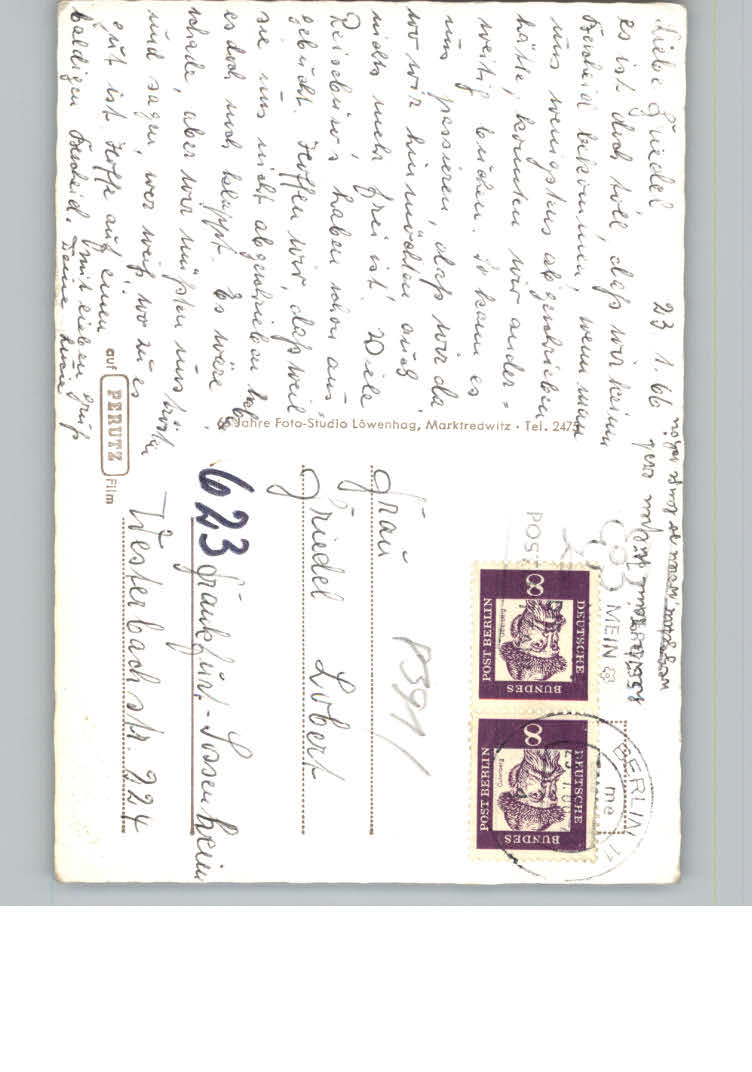 Liebe Friedel 23 1. 66
es ist doch toll, daß wir keinen
Bescheid bekommen, wenn man
uns wenigstens abgeschrieben
hätte, konnten wir ander=
weitig buchen. So kann es
uns passieren, daß wir da
wo wir hin möchten auch
nichts mehr frei ist. Viele
Reisebüro's haben schon aus
gebucht. Hoffen wir, daß weil
sie uns nicht abgeschrieben hab
es doch noch klappt. Es wäre
schade, aber wir müßten uns trösten
und sagen, wer weiß, wo zu es
gut ist. Hoffe auf einen
baldigen Bescheid. mit lieben Gruß
Deine
auf PERUTZ Film
Jahre Foto-Studio Löwenhag, Marktredwitz · Tel. 2475
Frau
Friedel Lobert
623 Frankfurt-Sossenheim
Westerbachstr. 224
8391/
POST
MEIN
BERLIN
me
DEUTSCHE
BUNDES
POST BERLIN
8
DEUTSCHE
BUNDES
POST BERLIN
8